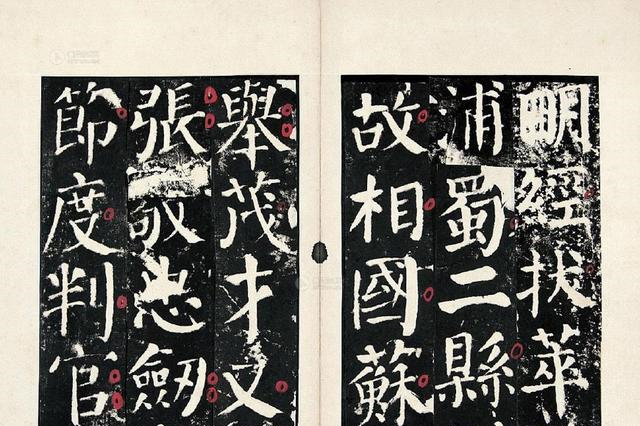 明經拔萃
浦蜀二縣
故相國蘇
舉茂才又
張敬忠劒
節度判官